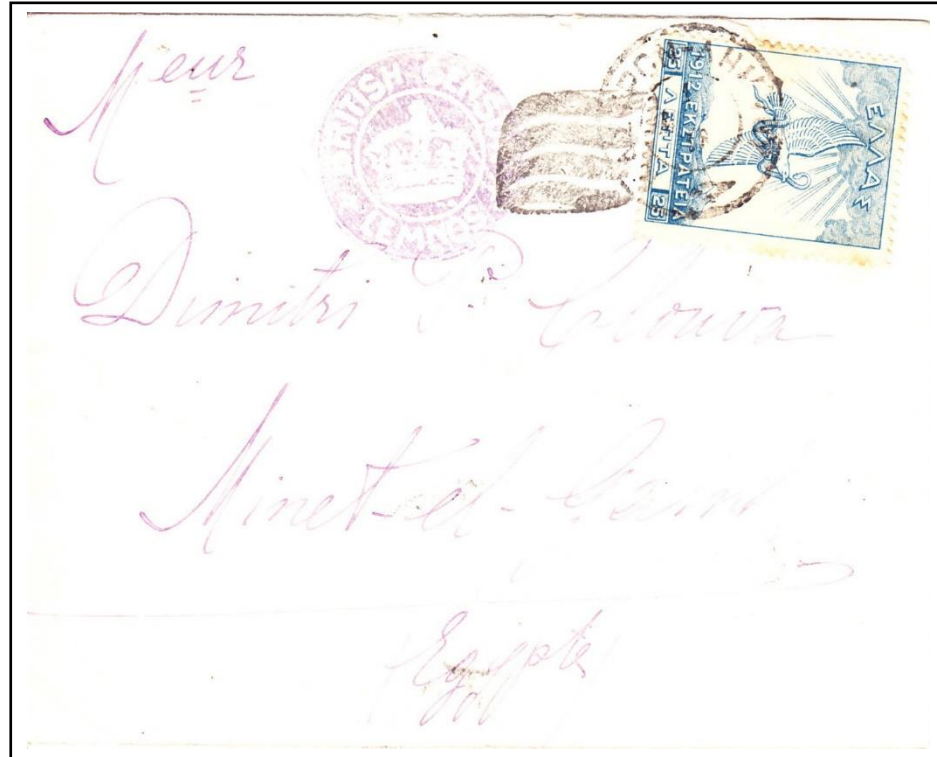 Mieur
BRITISH CENS
LEMNOS
ΕΛΛΑΣ
1912 ΕΚΣΤΡΑΤΕΙΑ
25 ΛΕΠΤΑ 25
Dimitri Clouva
Minet-el-
(Egypte)